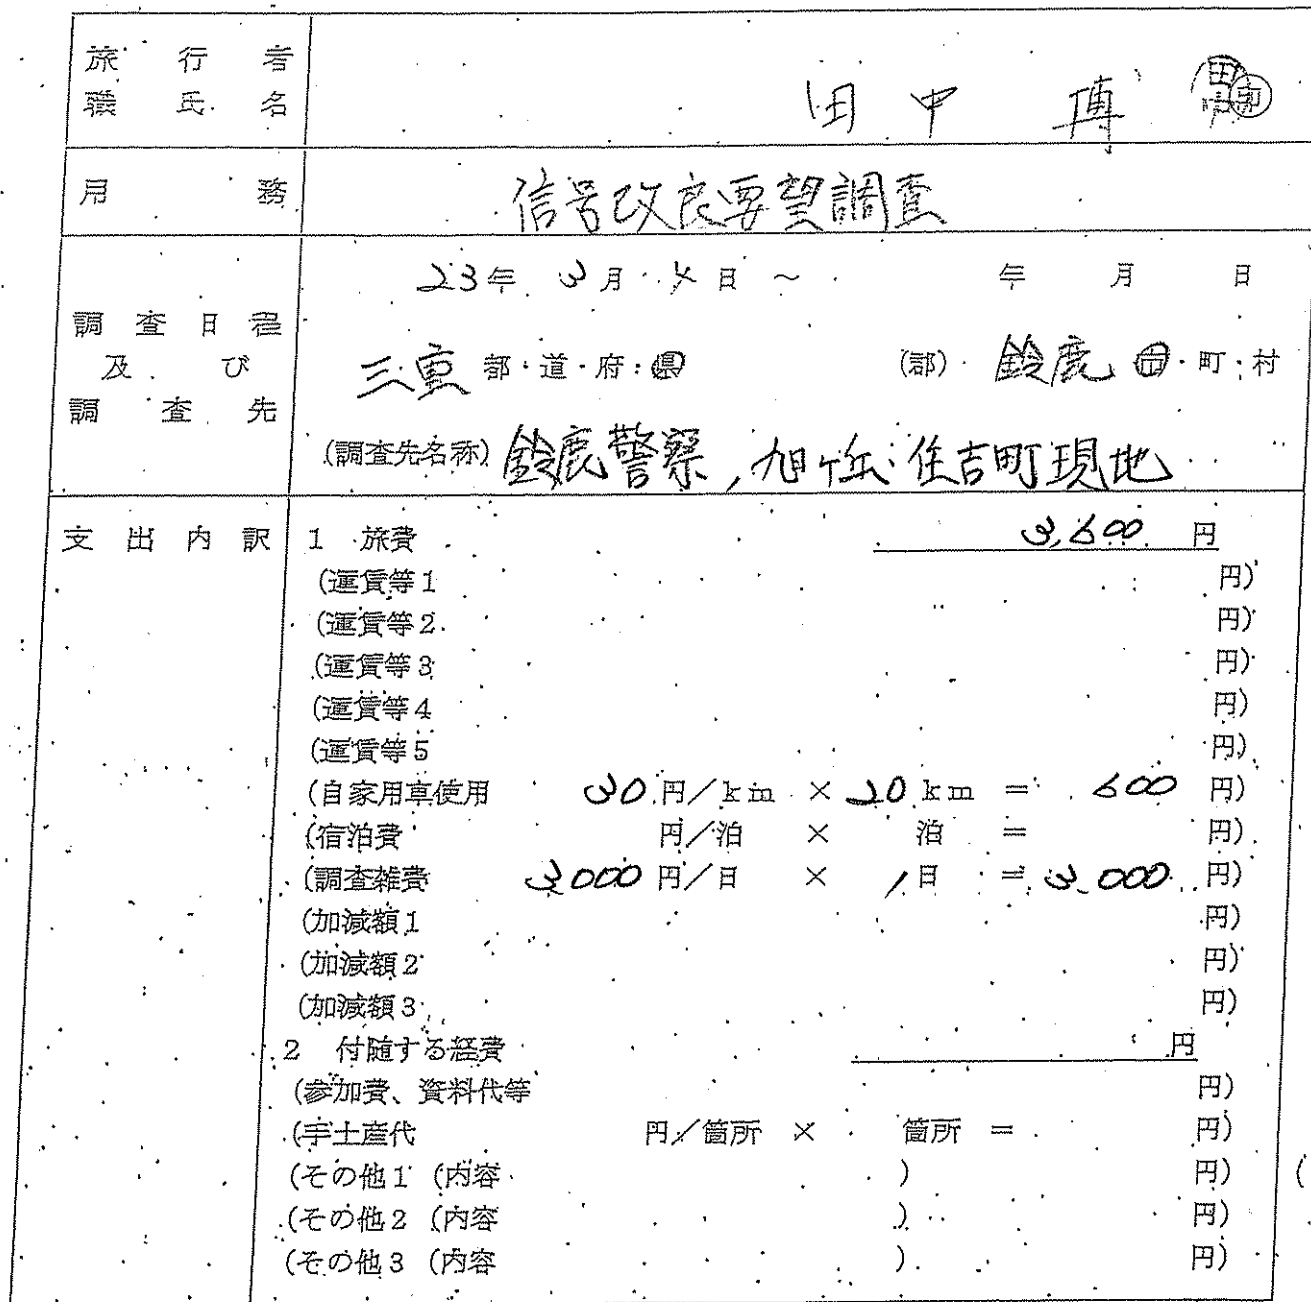 旅行者
職氏名
田中 博 ㊞
用務
信号改良要望調査
調査日程
及び
調査先
23年 3月 4日 ~ 年 月 日
三重 都・道・府・㊤県
(郡) 鈴鹿 市・町・村
(調査先名称) 鈴鹿警察, 旭ヶ丘・住吉町現地
支出内訳
1 旅費 3,600 円
(運賃等1 円)
(運賃等2 円)
(運賃等3 円)
(運賃等4 円)
(運賃等5 円)
(自家用車使用 30 円/km × 20 km = 600 円)
(宿泊費 円/泊 × 泊 = 円)
(調査雑費 3,000 円/日 × 1日 = 3,000 円)
(加減額1 円)
(加減額2 円)
(加減額3 円)
2 付随する経費 円
(参加費、資料代等 円)
(手土産代 円/箇所 × 箇所 = 円)
(その他1 (内容 ) 円)
(その他2 (内容 ) 円)
(その他3 (内容 ) 円)